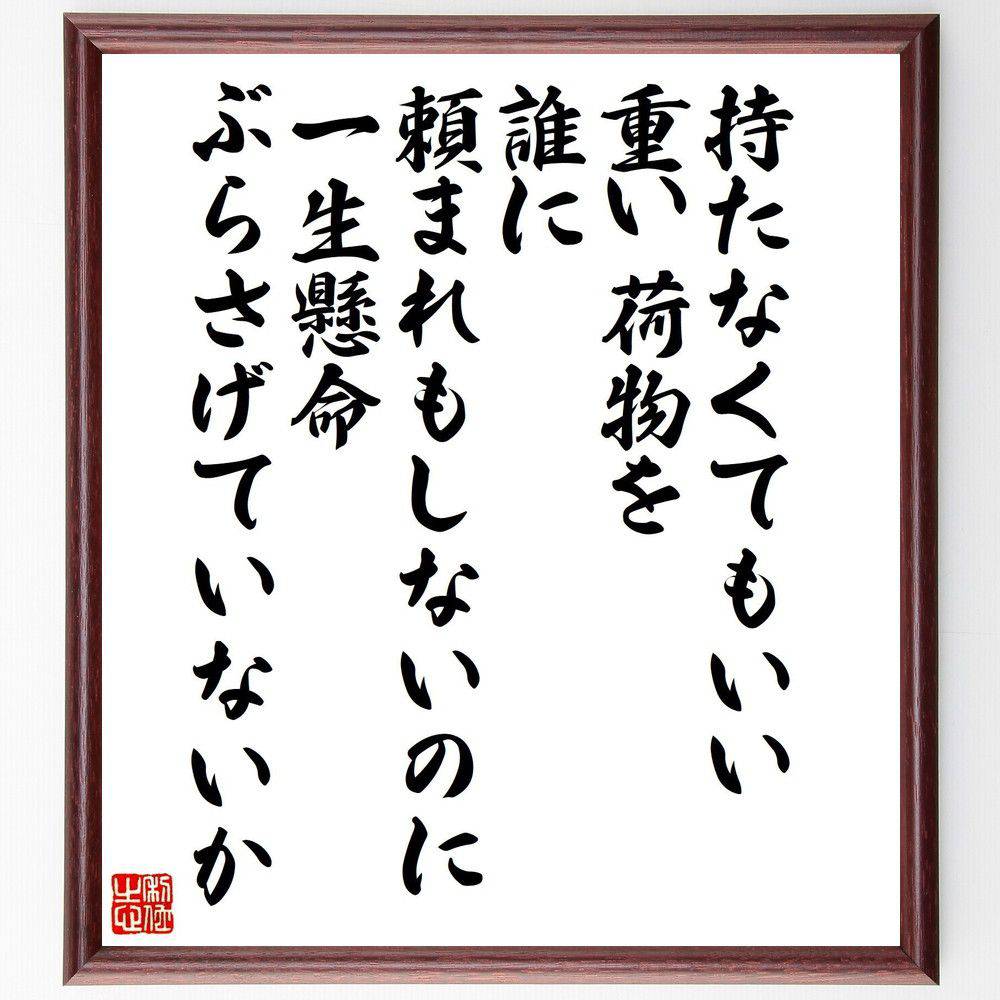 持たなくてもいい
重い 荷物を
誰に
頼まれもしないのに
一生懸命
ぶらさげていないか